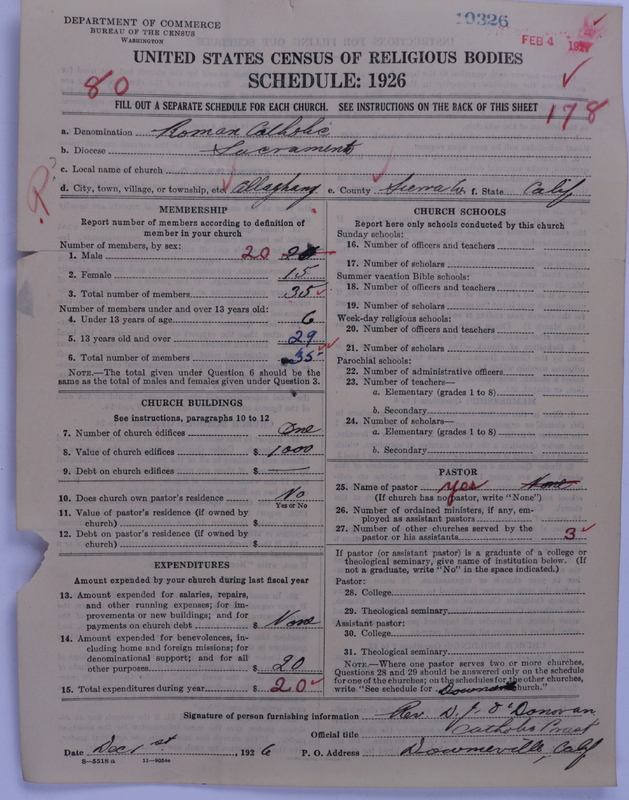 DEPARTMENT OF COMMERCE
BUREAU OF THE CENSUS
WASHINGTON
19326
FEB 4
UNITED STATES CENSUS OF RELIGIOUS BODIES
SCHEDULE: 1926
80
178
FILL OUT A SEPARATE SCHEDULE FOR EACH CHURCH. SEE INSTRUCTIONS ON THE BACK OF THIS SHEET
a. Denomination Roman Catholic
b. Diocese Sacramento
c. Local name of church
d. City, town, village, or township, etc. Alleghany e. County Sierra Co. f. State Calif
MEMBERSHIP
Report number of members according to definition of
member in your church
Number of members, by sex:
1. Male 20 20
2. Female 15
3. Total number of members 35
Number of members under and over 13 years old:
4. Under 13 years of age 6
5. 13 years old and over 29
6. Total number of members 35
NOTE.—The total given under Question 6 should be the
same as the total of males and females given under Question 3.
CHURCH BUILDINGS
See instructions, paragraphs 10 to 12
7. Number of church edifices One
8. Value of church edifices $ 1000
9. Debt on church edifices $ —
10. Does church own pastor's residence No
Yes or No
11. Value of pastor's residence (if owned by
church) $
12. Debt on pastor's residence (if owned by
church) $
EXPENDITURES
Amount expended by your church during last fiscal year
13. Amount expended for salaries, repairs,
and other running expenses; for im-
provements or new buildings; and for
payments on church debt $ None
14. Amount expended for benevolences, in-
cluding home and foreign missions; for
denominational support; and for all
other purposes $ 20
15. Total expenditures during year $ 20
CHURCH SCHOOLS
Report here only schools conducted by this church
Sunday schools:
16. Number of officers and teachers
17. Number of scholars
Summer vacation Bible schools:
18. Number of officers and teachers
19. Number of scholars
Week-day religious schools:
20. Number of officers and teachers
21. Number of scholars
Parochial schools:
22. Number of administrative officers
23. Number of teachers—
a. Elementary (grades 1 to 8)
b. Secondary
24. Number of scholars—
a. Elementary (grades 1 to 8)
b. Secondary
PASTOR
25. Name of pastor yes None
(If church has no pastor, write "None")
26. Number of ordained ministers, if any, em-
ployed as assistant pastors
27. Number of other churches served by the
pastor or his assistants 3
If pastor (or assistant pastor) is a graduate of a college or
theological seminary, give name of institution below. (If
not a graduate, write "No" in the space indicated.)
Pastor:
28. College
29. Theological seminary
Assistant pastor:
30. College
31. Theological seminary
NOTE.—Where one pastor serves two or more churches,
Questions 28 and 29 should be answered only on the schedule
for one of the churches; on the schedules for the other churches,
write "See schedule for church."
Signature of person furnishing information Rev. D. J. O'Donovan
Official title Catholic Priest
Date Dec 1st, 1926 P. O. Address Downieville, Calif
8—5518a 11—9054a